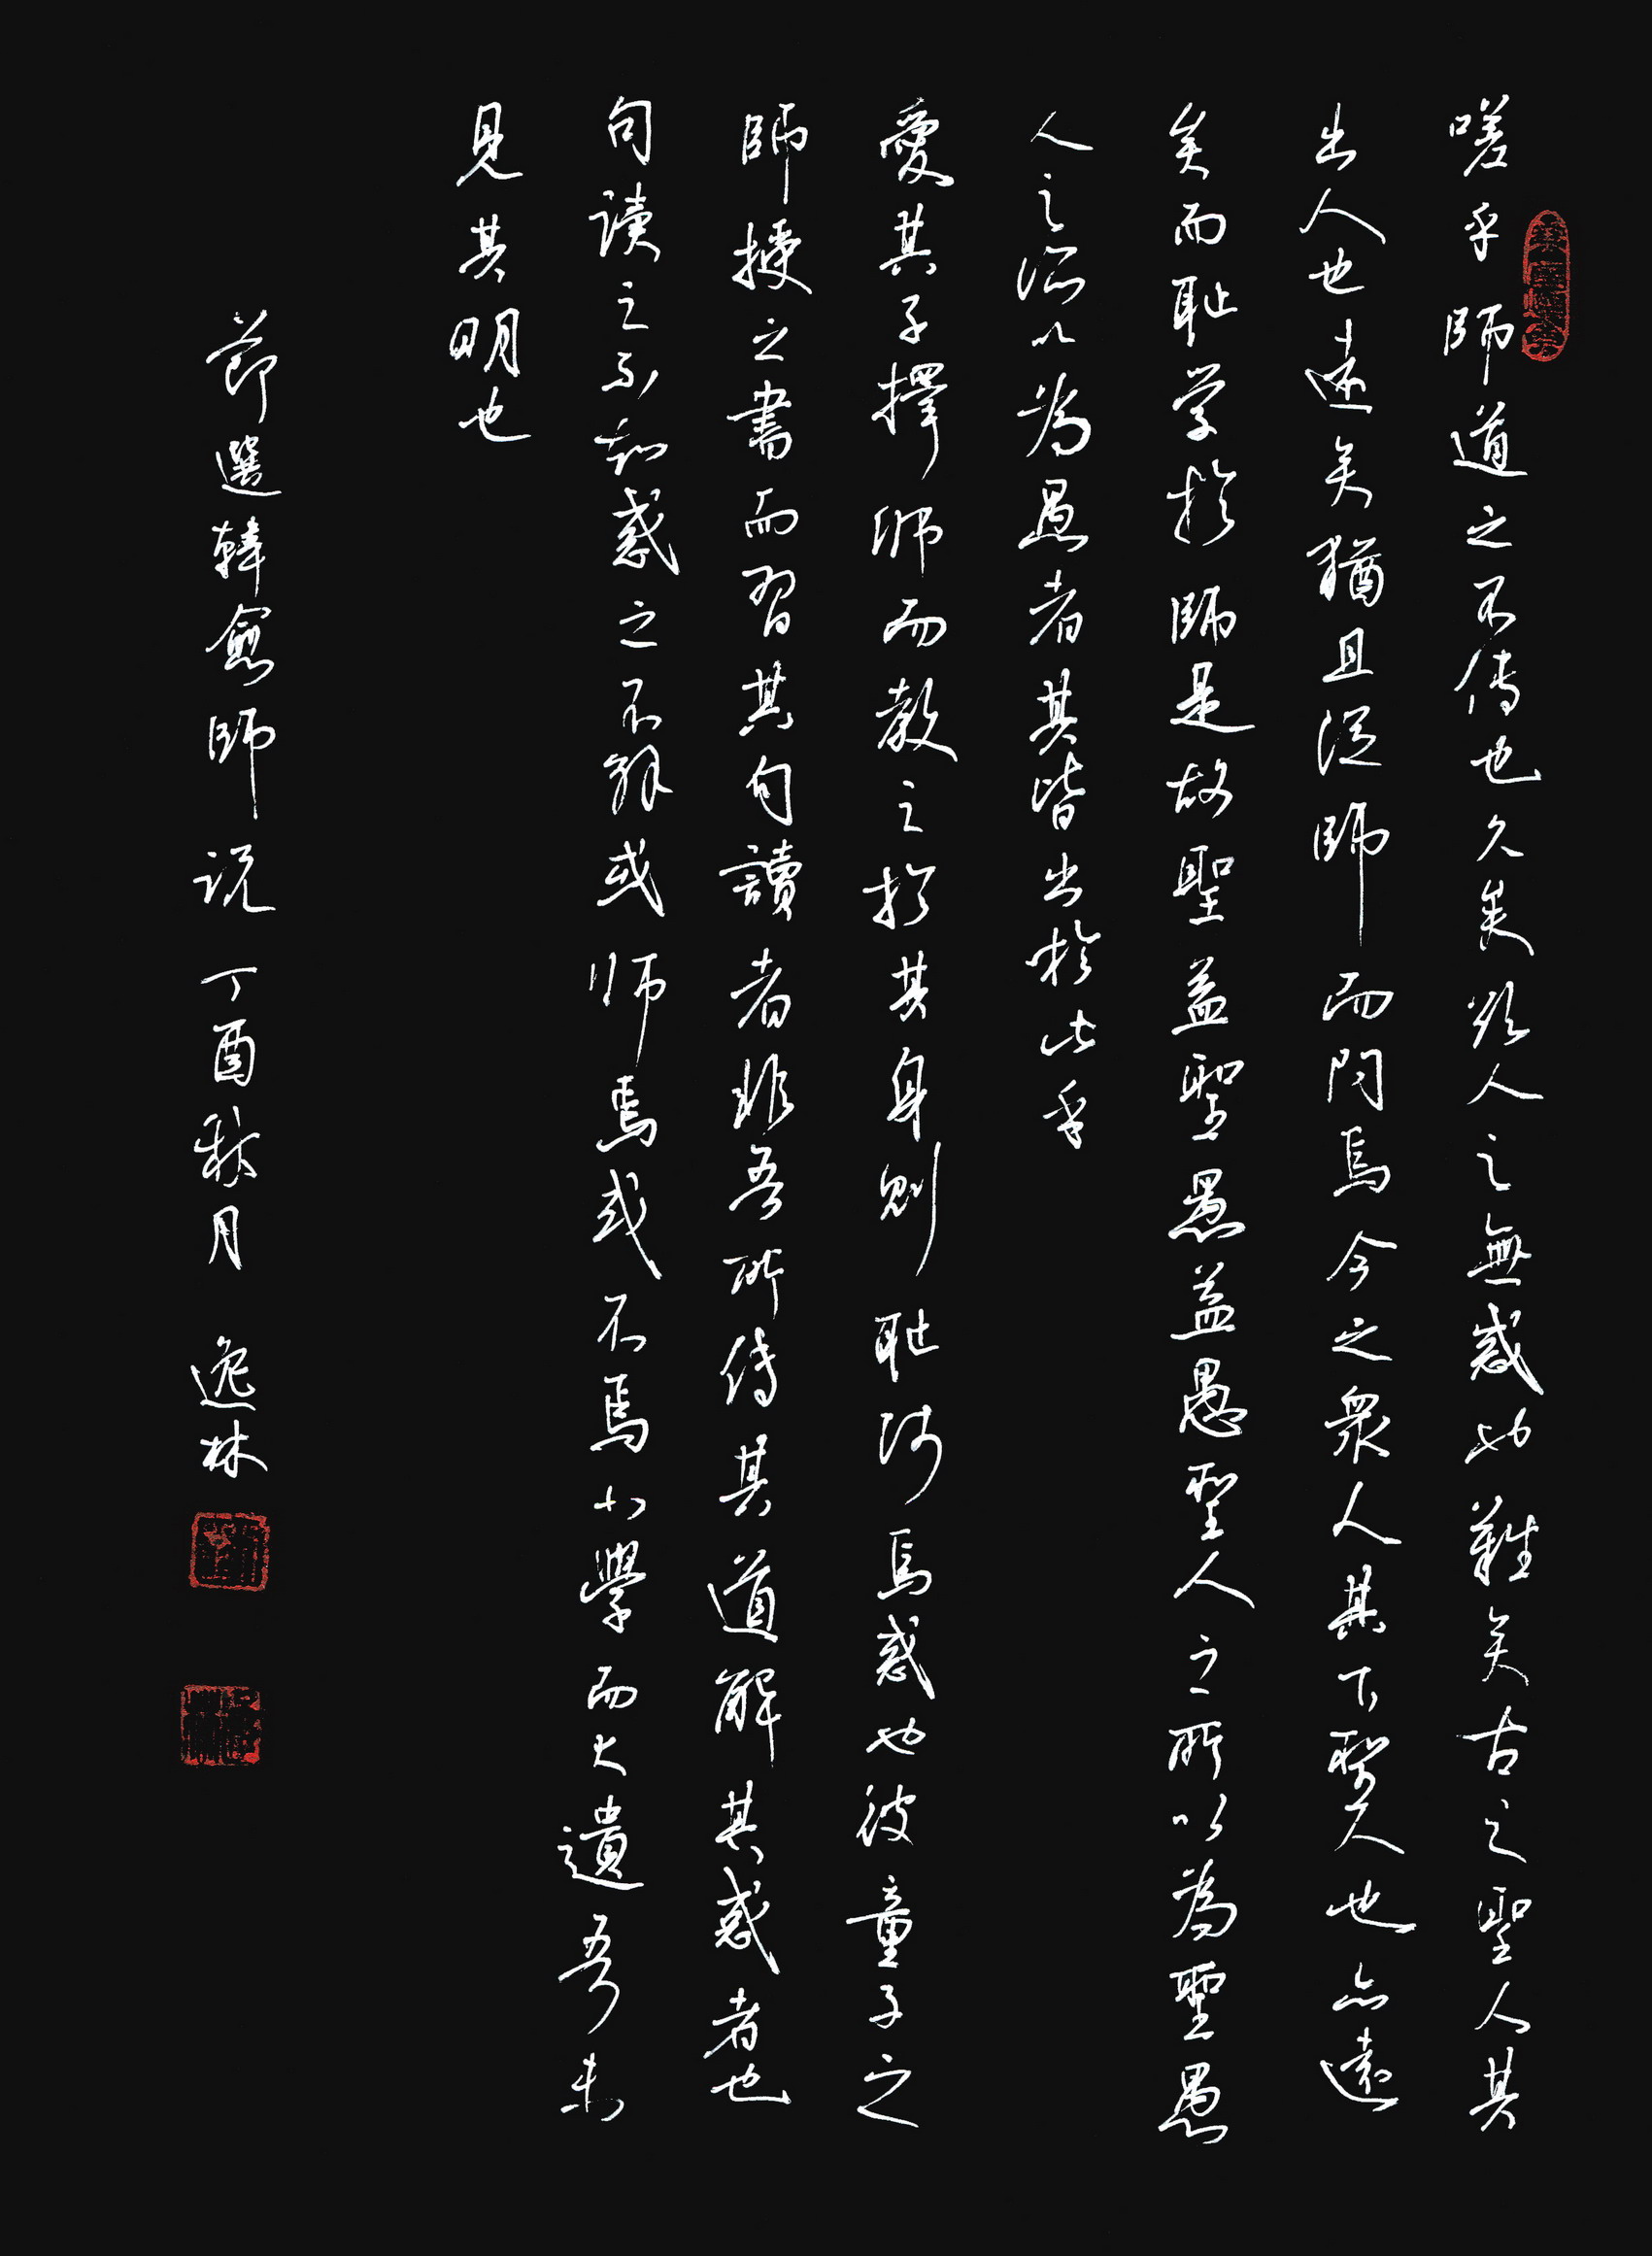 嗟乎師道之不傳也久矣欲人之無惑也難矣古之聖人其
出人也遠矣猶且從師而問焉今之衆人其下聖人也亦遠
矣而耻学於師是故聖益聖愚益愚聖人之所以為聖愚
人之所以為愚者其皆出於此乎
愛其子擇師而教之於其身則耻師焉惑也彼童子之
師授之書而習其句讀者非吾所傳其道解其惑者也
句讀之不知惑之不解或師焉或不焉小學而大遺吾未
見其明也
節選韓愈師説 丁酉秋月 逸林